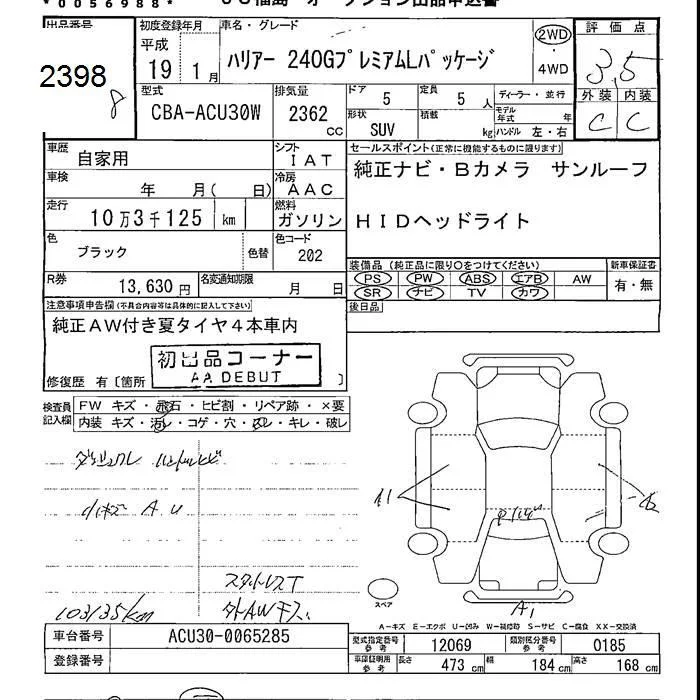 *0056988* JU福島 オークション出品申込書
出品番号 2398 8
初度登録年月 平成 19 1月
車名・グレード ハリアー 240GプレミアムLパッケージ
2WD 4WD
評価点 3.5
外装 内装
C C
型式 CBA-ACU30W
排気量 2362 CC
ドア 5
定員 5 人
形状 SUV
積載 kg
ディーラー・並行
モデル年式 年
ハンドル 左・右
車歴 自家用
シフト IAT
車検 年 月( 日)
冷房 AAC
走行 10万3千125 km
燃料 ガソリン
色 ブラック 色替
色コード 202
R券 13,630円
名変通知期限 月 日
セールスポイント(正常に機能するものに限ります)
純正ナビ・Bカメラ サンルーフ
HIDヘッドライト
装備品(純正品に限り○をつけてください)
PS PW ABS エアB AW
SR ナビ TV カワ
新車保証書 有・無
後日品
注意事項申告欄(不具合内容等は具体的に記入して下さい)
純正AW付き夏タイヤ4本車内
初出品コーナー
AA DEBUT
修復歴 有〔箇所 〕
検査員記入欄
FW キズ・飛石・ヒビ割・リペア跡・×要
内装 キズ・汚レ・コゲ・穴・スレ・キレ・破レ
小キズ A U
103135km
スタットレスT
外AWキズ
スペア
A1
A-キズ E-エクボ U-凹み W-補修跡 S-サビ C-腐食 XX-交換済
車台番号 ACU30-0065285
登録番号
型式指定番号 参考 12069
類別区分番号 参考 0185
車庫証明用 参考 長さ 473 cm 幅 184 cm 高さ 168 cm